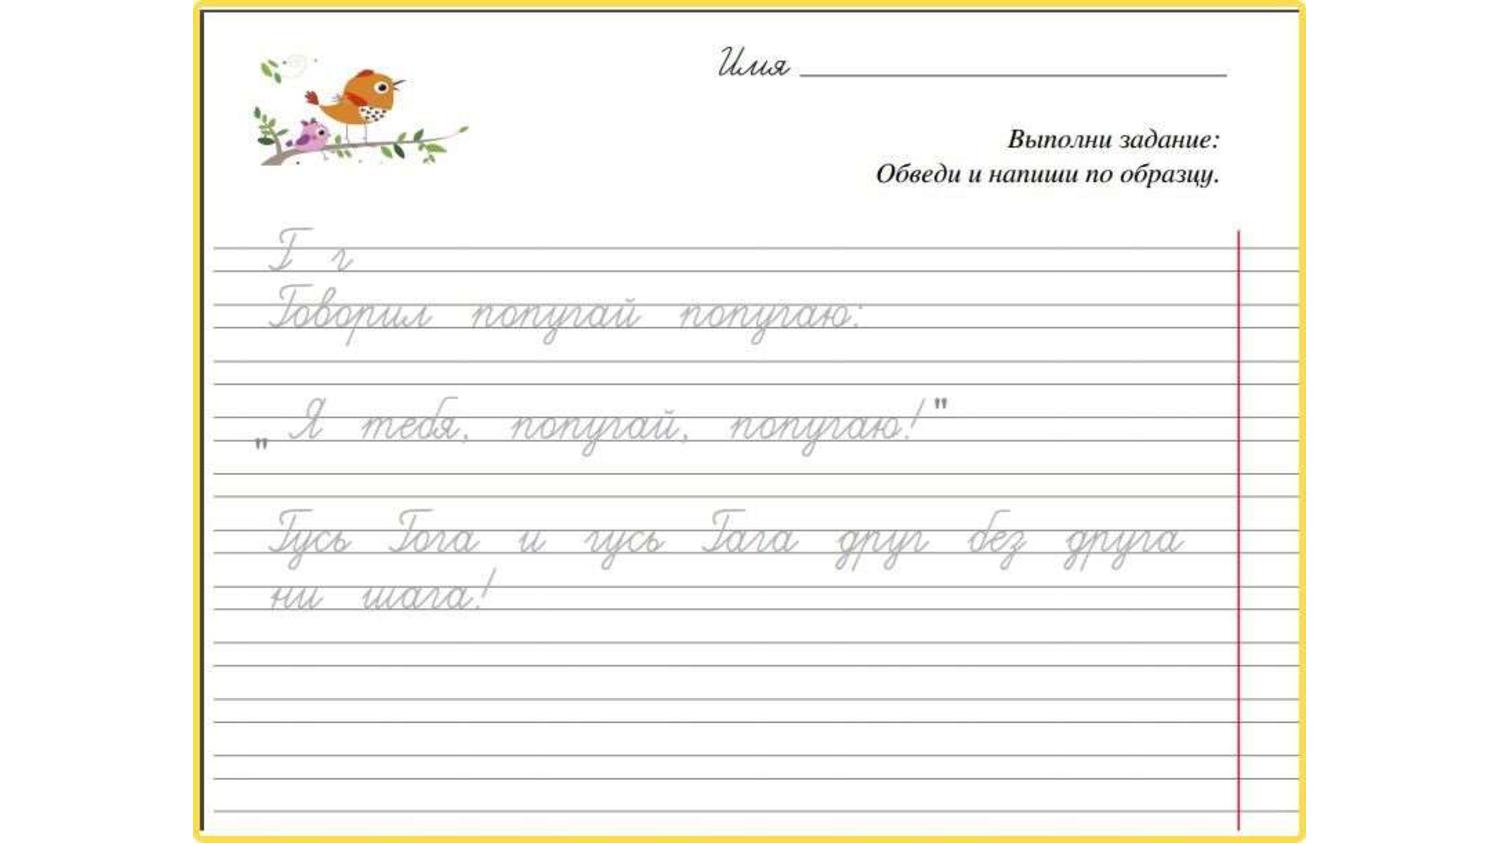 Имя
Выполни задание:
Обведи и напиши по образцу.
Г г
Говорил попугай попугаю:
„ Я тебя, попугай, попугаю! "
Гусь Гога и гусь Гага друг без друга
ни шага!